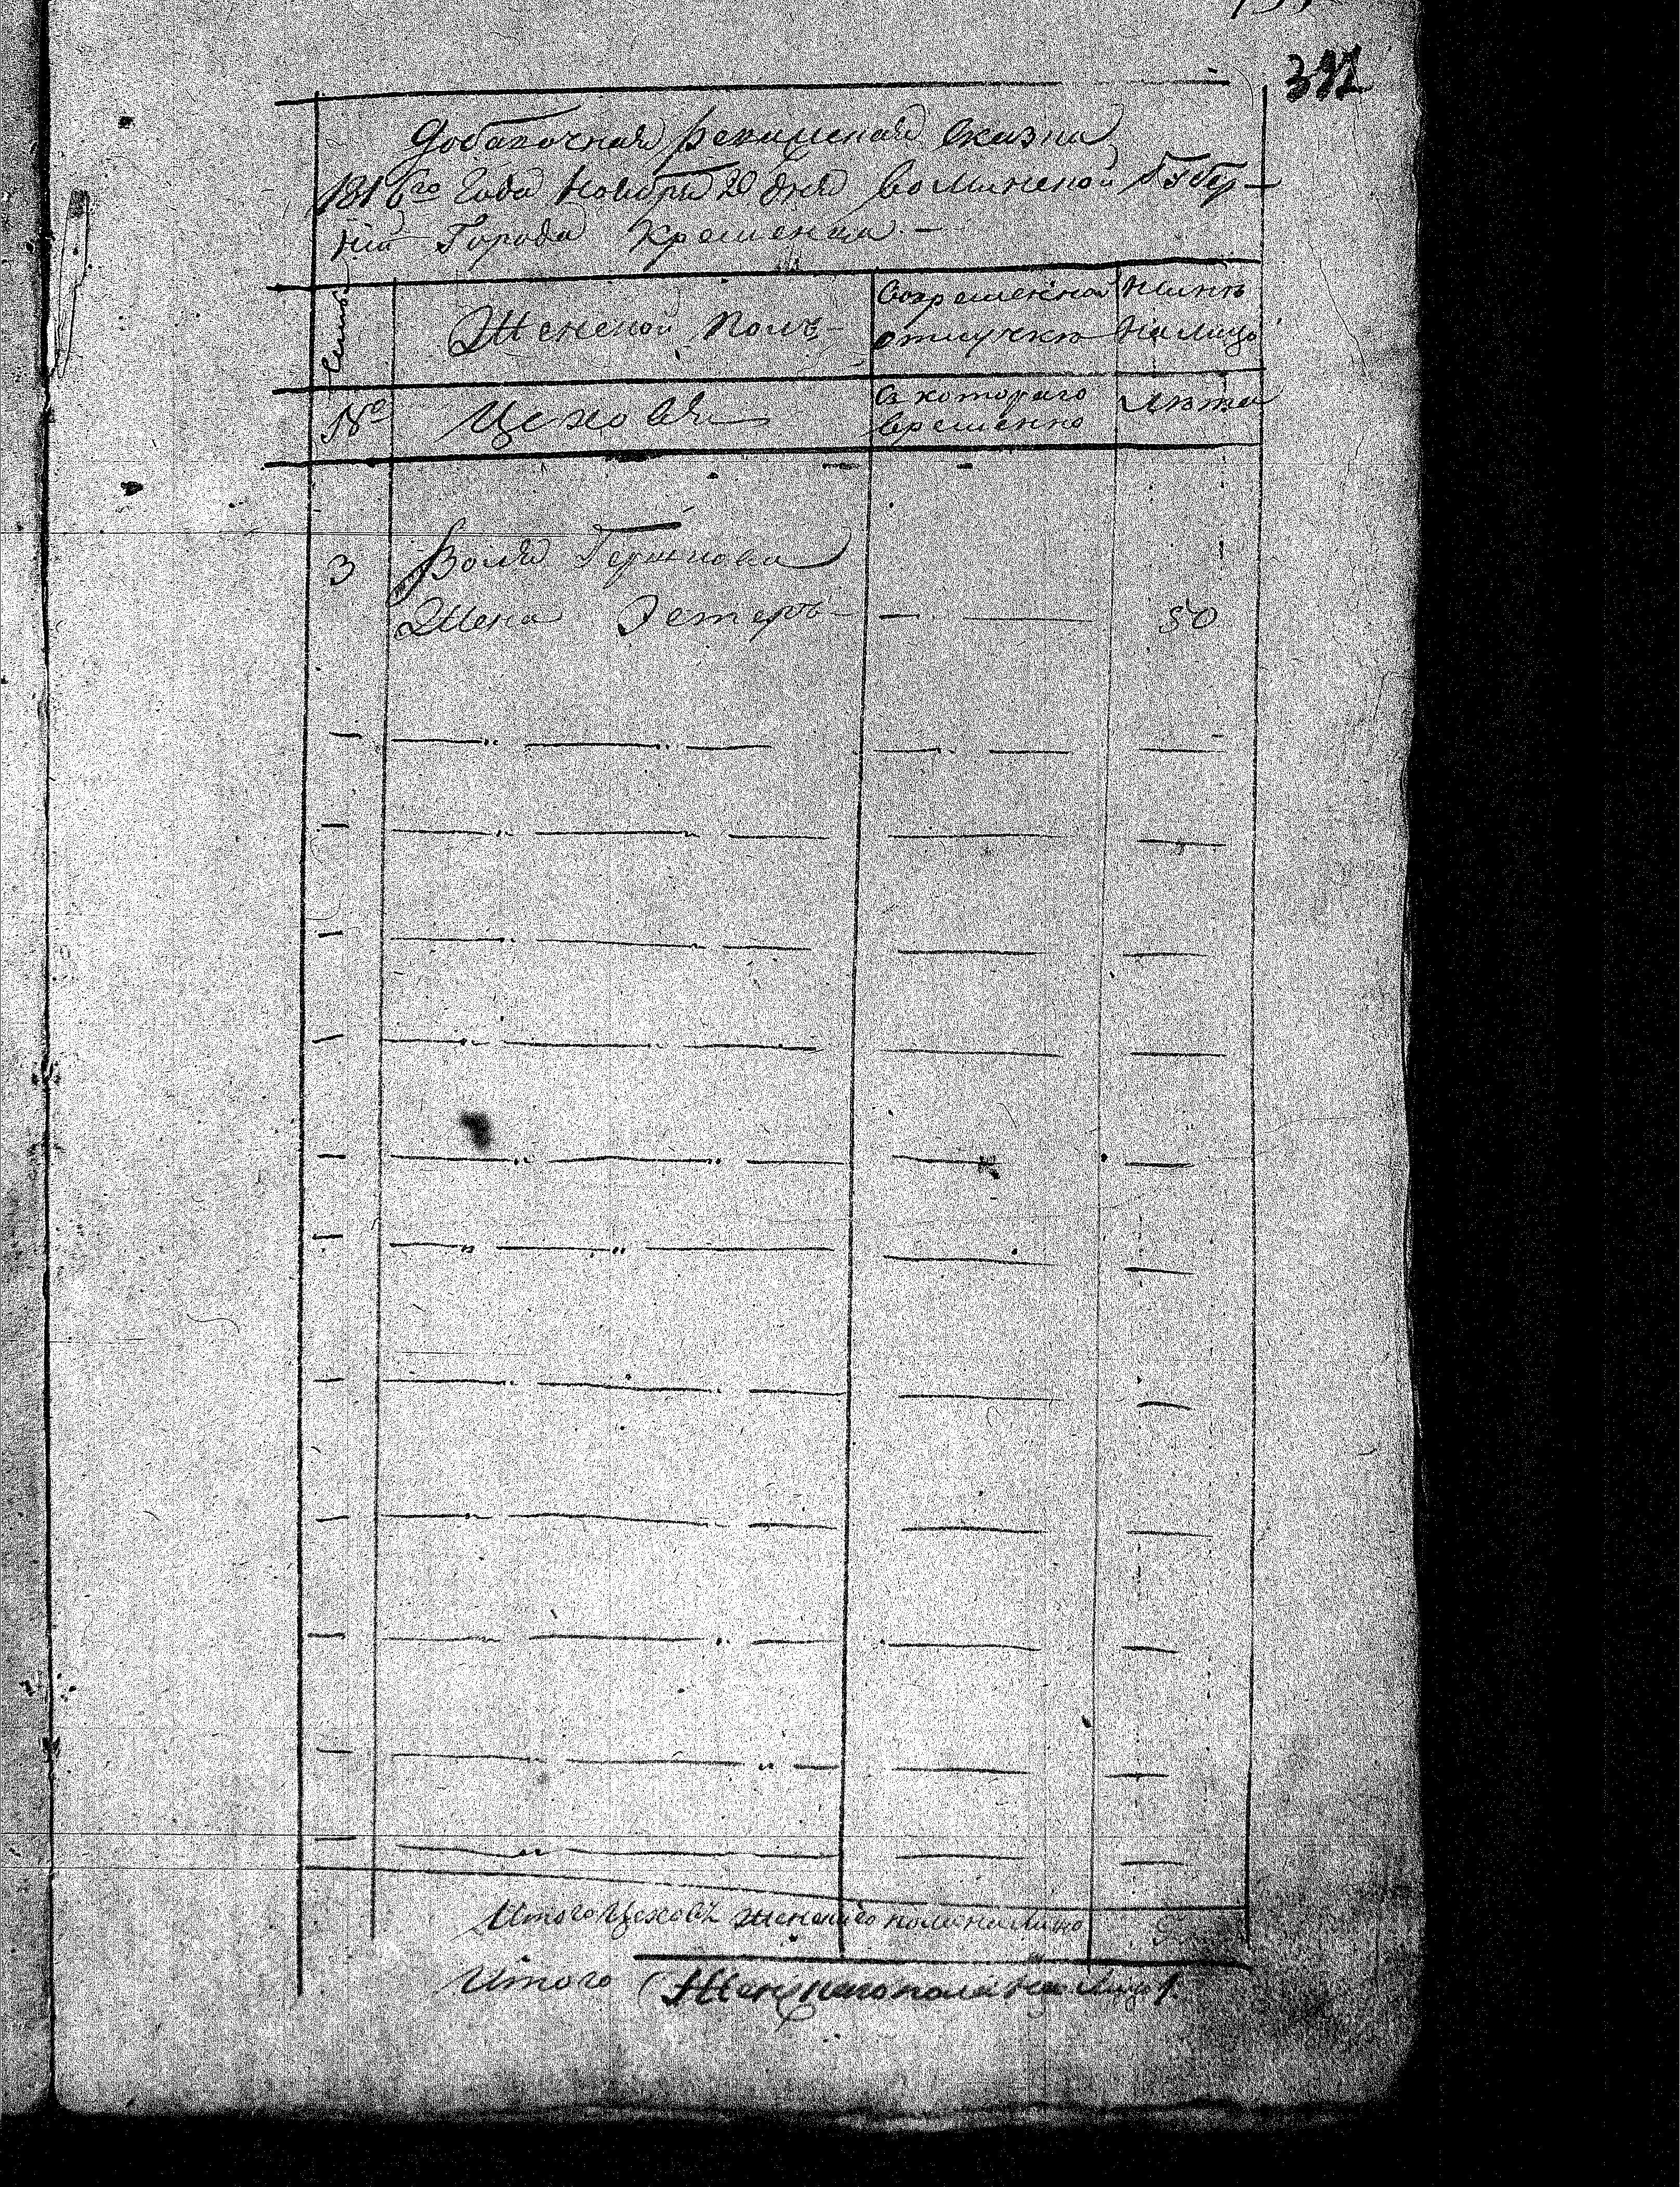 392
Добавочная Ревизская Сказка
1816го Года Ноября 20 дня Волинской Губер-
нии Города Кременца -
Семья
Женской Полъ -
Вовременной отлучке
Ныне На лицо
№
Цеховыя
Съ котораго временно
Лета
3
Воля Гершкова
Жена Эстеръ - 50
Итого Цеховъ женского пола на лицо
Итого Женскаго пола на лицо 1.